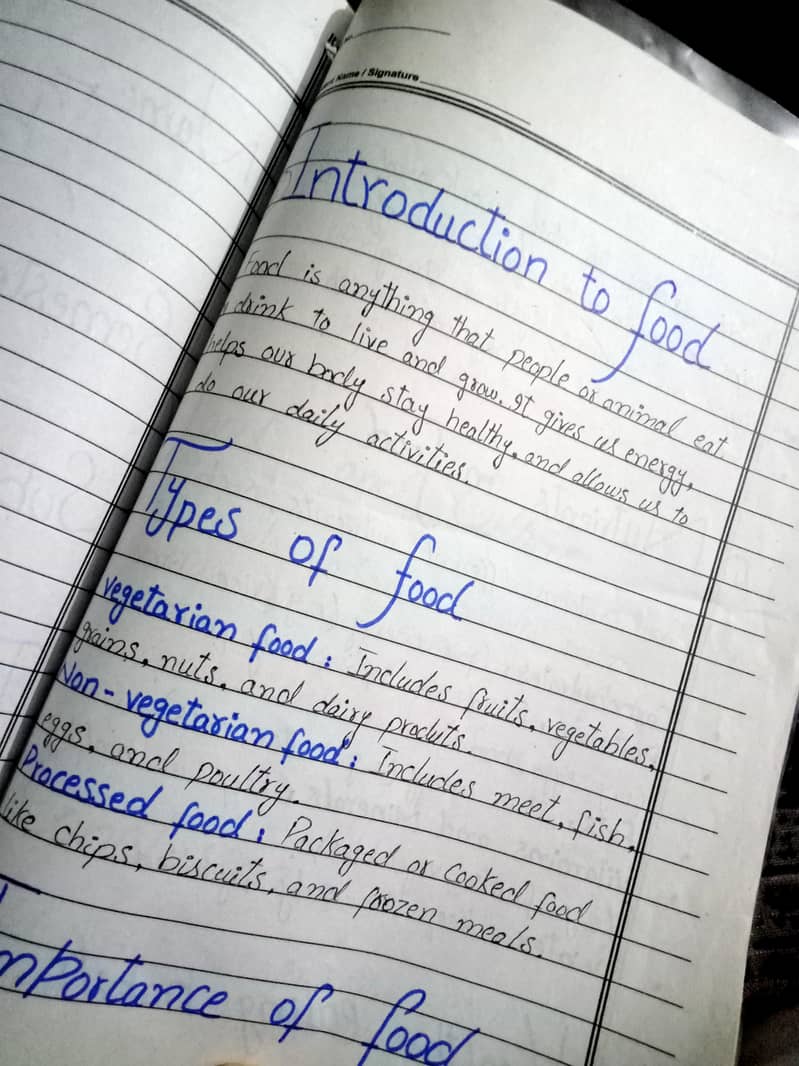 Name / Signature
Introduction to food
Food is anything that people or animal eat
drink to live and grow. It gives us energy,
helps our body stay healthy, and allows us to
do our daily activities.
Types of food
vegetarian food : Includes fruits, vegetables,
grains, nuts, and dairy produts.
Non-vegetarian food : Includes meet, fish,
eggs, and poultry.
Processed food : Packaged or cooked food
like chips, biscuits, and frozen meals.
Importance of food